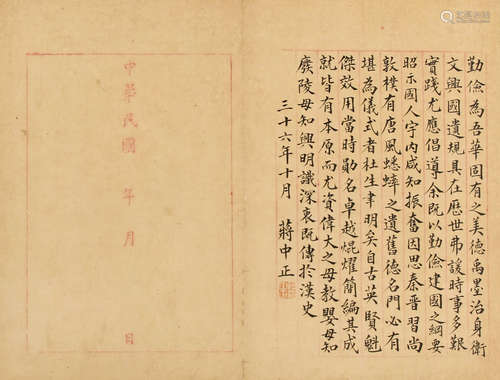 勤儉為吾華固有之美德禹墨治身衛
文興國遺規具在歷世弗諼時事多艱
實踐尤應倡導余既以勤儉建國之綱要
昭示國人宇内咸知振奮因思秦晉習尚
敦樸有唐風蟋蟀之遺舊德名門必有
堪為儀式者杜生聿明矣自古英賢魁
傑效用當時勛名卓越焜耀簡編其成
就皆有本原而尤資偉大之母教嬰母知
廢陵母知興明識深衷既傳於漢史
三十六年十月 蔣中正
中華民國 年 月 日